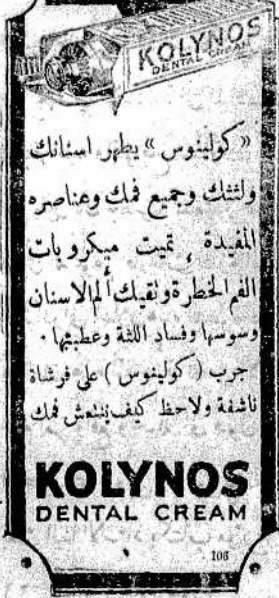 KOLYNOS
DENTAL CREAM
« كولينوس » يطهر اسنانك
ولثتك وجميع فمك وعناصره
المفيدة , تميت ميكروبات
الفم الخطرة وتقيك ألم الاسنان
وسوسها وفساد اللثة وعطبها .
جرب ( كولينوس ) على فرشاة
ناشفة ولاحظ كيف ينتعش فمك
KOLYNOS
DENTAL CREAM
106